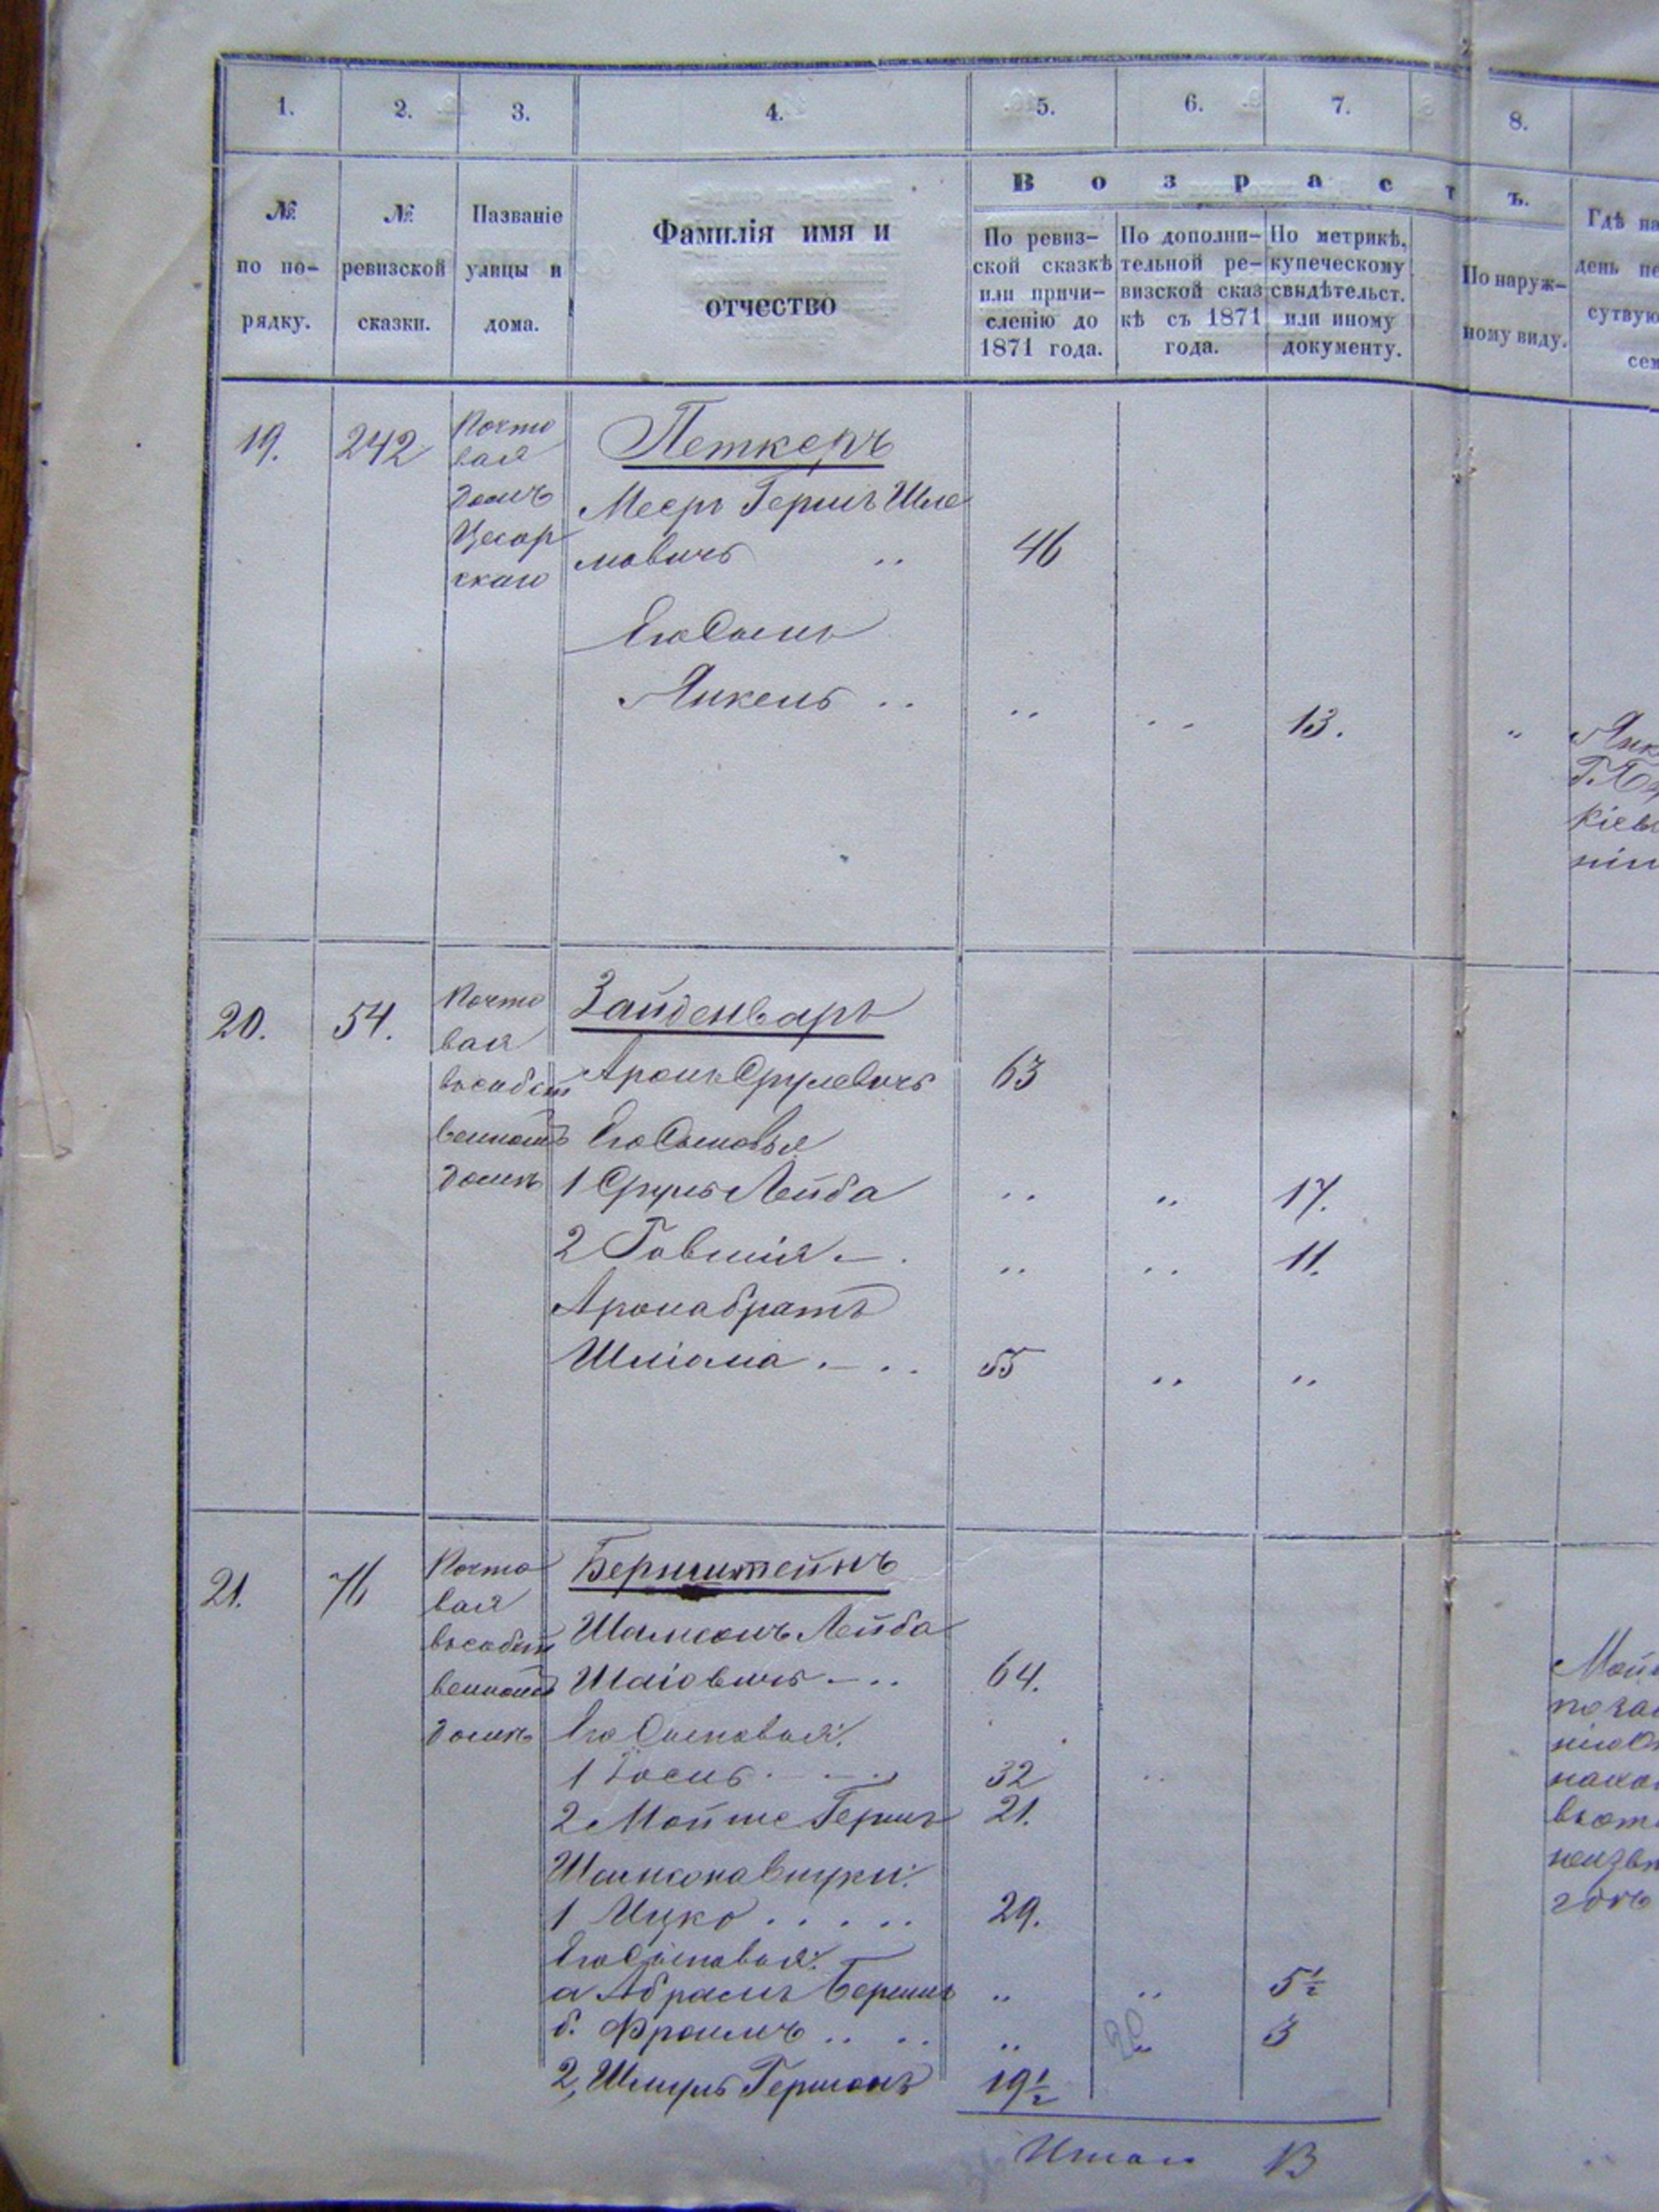 1. 2. 3. 4. 5. 6. 7. 8.
№ по по- рядку.
№ ревизской сказки.
Пазваніе улицы и дома.
Фамилія имя и
отчество
В о з р а с т ъ.
По ревиз-
ской сказкѣ
или причи-
сленію до
1871 года.
По дополни-
тельной ре-
визской сказ
кѣ съ 1871
года.
По метрикѣ,
купеческому
свидѣтельст.
или иному
документу.
По наруж-
ному виду.
Гдѣ на
день пе
сутвую
сем
19. 242
Почто
вая
домъ
Цесар
скаго
Петкеръ
Мееръ Гершъ Шле
мовичъ .. 46
Его Сынъ
Янкель .. .. .. 13. "
Янк
Кіев
20. 54.
Почто
вая
въ собст
венномъ
домѣ
Зайденваръ
Аронъ Срулевичъ 63
Его Сыновья
1 Сруль Лейба .. .. 17.
2 Говшія .. .. 11.
Арона братъ
Шліома 55 .. ..
21. 76
Почто
вая
въ собст
венномъ
домѣ
Бернштейнъ
Шамсонъ Лейба
Шаіовичъ 64.
Его Сыновья:
1 Іось 32 ..
2 Мойше Гершъ 21.
Шамсона внуки:
1 Ицко 29.
Его Сыновья:
а Абрамъ Бериш .. .. 5½
б. Фроимъ .. .. 3
2, Шмуль Гершонъ 19½
Итого 13
Мой